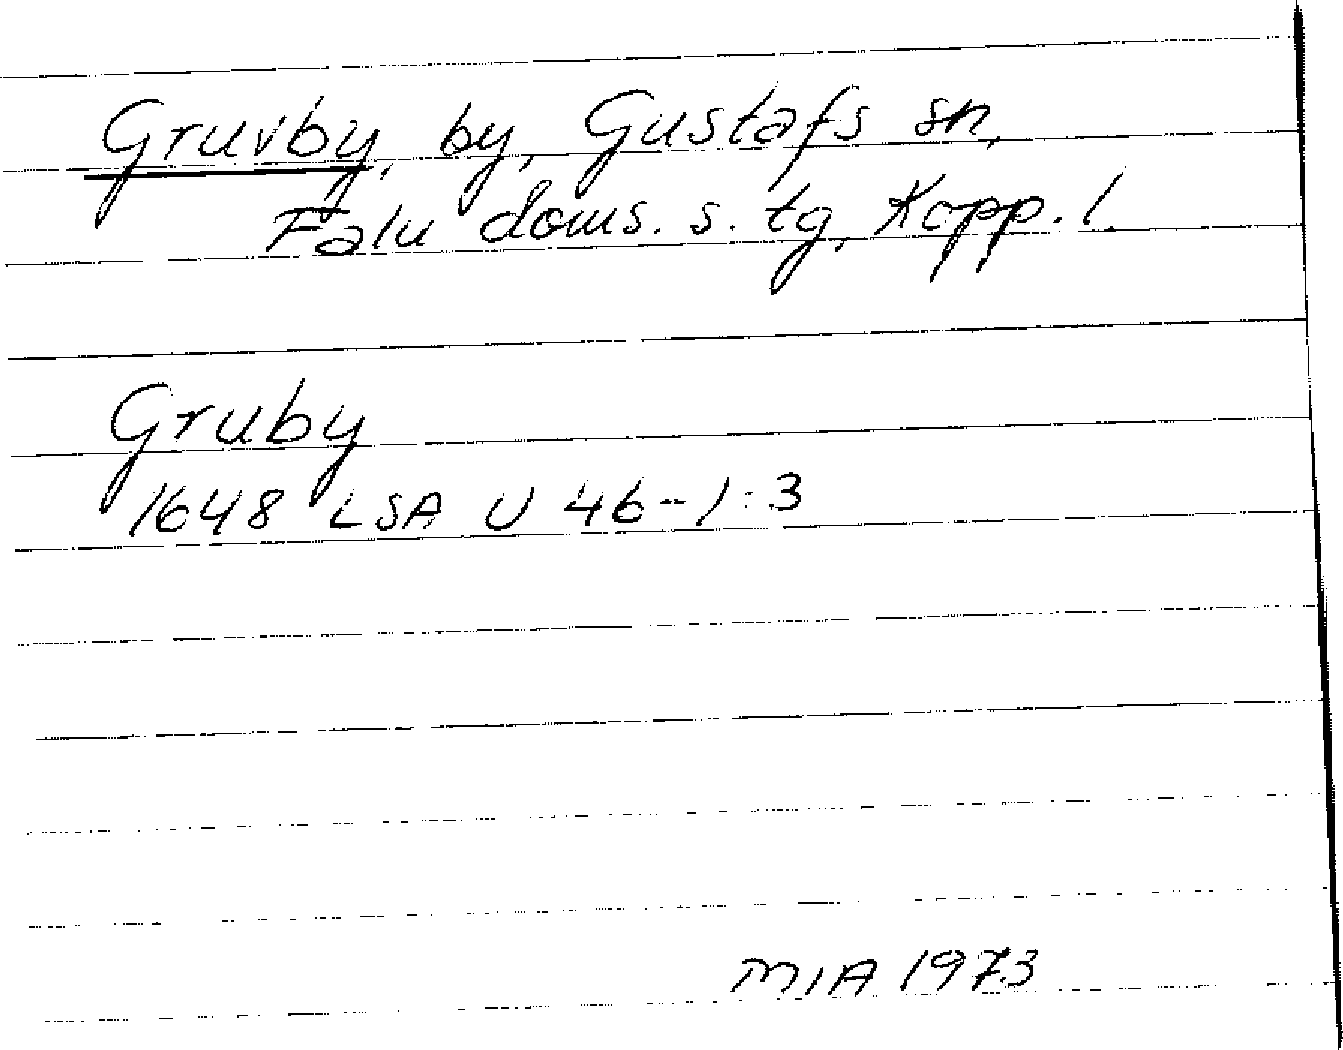 Gruvby, by, Gustafs sn,
Falu doms. s. tg, Kopp. l.
Gruby
1648 LSA U 46-1:3
MIA 1973